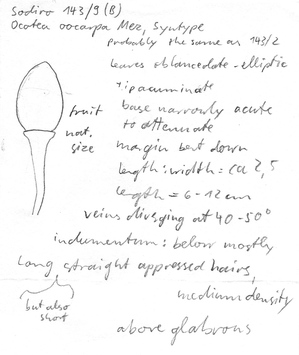 Sodiro 143/9 (B)
Ocotea oocarpa Mez, Syntype
Probably the same as 143/2
leaves oblanceolate-elliptic
tip acuminate
base narrowly acute
to attenuate
fruit
nat.
size
margin bent down
length:width = ca 2,5
length = 6-12 cm
veins diverging at 40-50°
indumentum: below mostly
long straight appressed hairs,
but also
short
medium density
above glabrous